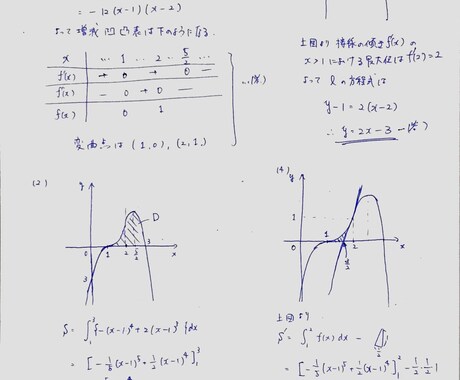 = -12(x-1)(x-2)
よって増減凹凸表は下のようになる
x … 1 … 2 … 5/2 …
f'(x) + 0 + 0 -
f''(x) - 0 + 0 -
f(x) 0 1
…(答)
変曲点は (1,0), (2,1)
(2)
y
D
0 1 2 5/2 3 x
-3
S = ∫₁³ {-(x-1)⁴ + 2(x-1)³} dx
= [-1/5 (x-1)⁵ + 1/2 (x-1)⁴]₁³
上図より 接線の傾き f'(x) の
x>1 における最大値は f'(2)=2
よって l の方程式は
y-1 = 2(x-2)
∴ y = 2x-3 …(答)
(4)
y
1
0 1 3/2 2 x
上図より
S' = ∫₁² f(x) dx -
= [-1/5 (x-1)⁵ + 1/2 (x-1)⁴]₁² - 1/2 · 1/2 · 1